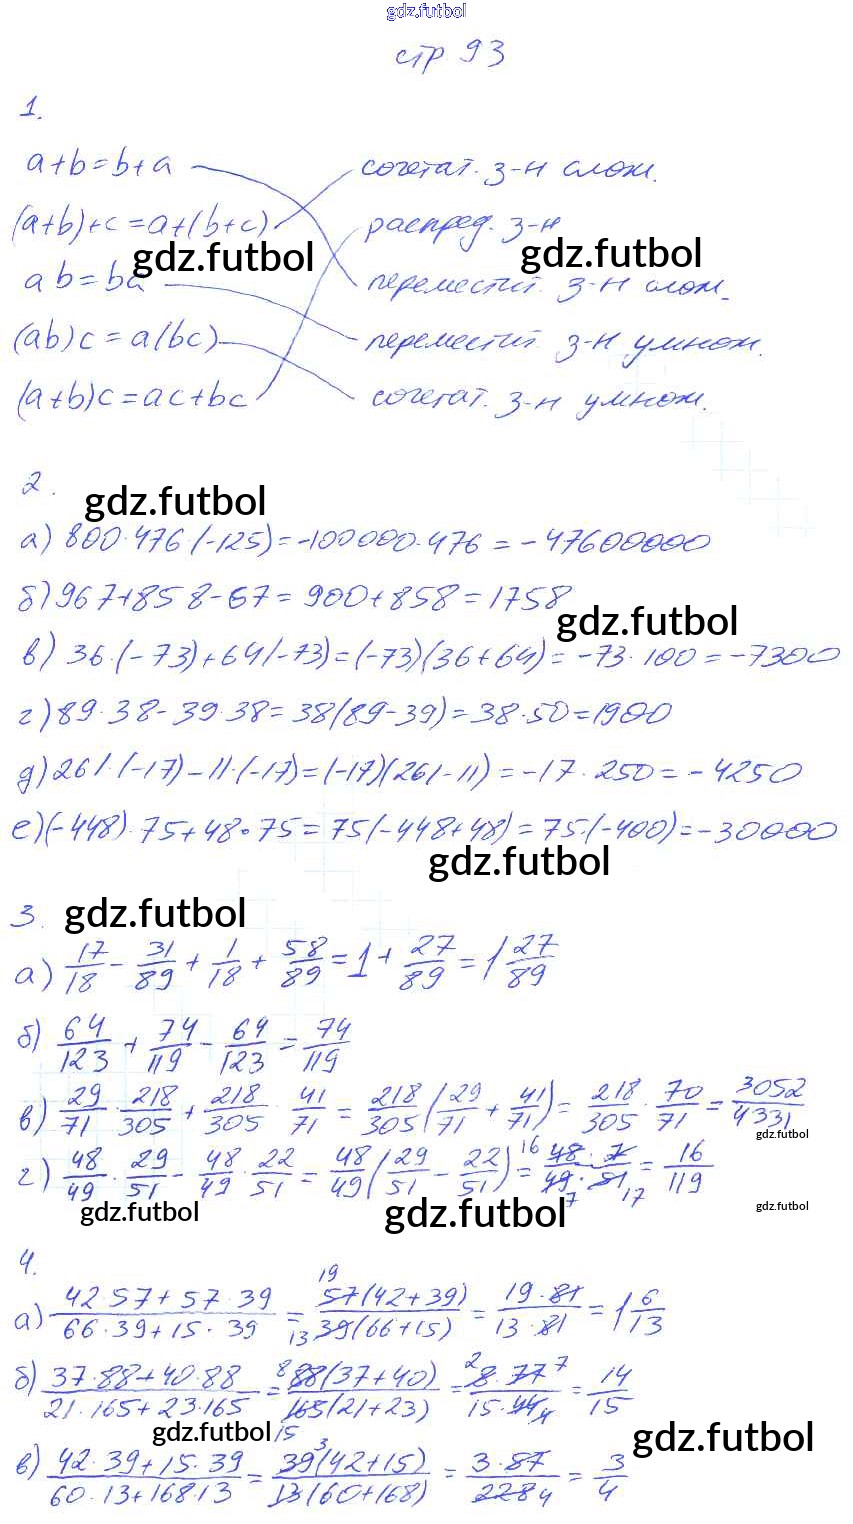 gdz.futbol
стр 93
1.
a+b=b+a сочетат. з-н слож.
(a+b)+c=a+(b+c) распред. з-н
gdz.futbol gdz.futbol
ab=ba переместит. з-н слож.
(ab)c=a(bc) переместит. з-н умнож.
(a+b)c=ac+bc сочетат. з-н умнож.
2.
gdz.futbol
а) 800·476·(-125)=-100000·476=-47600000
б) 967+858-67=900+858=1758
gdz.futbol
в) 36·(-73)+64(-73)=(-73)(36+64)=-73·100=-7300
г) 89·38-39·38=38(89-39)=38·50=1900
д) 261·(-17)-11·(-17)=(-17)(261-11)=-17·250=-4250
е) (-448)·75+48·75=75(-448+48)=75·(-400)=-30000
gdz.futbol
3. gdz.futbol
а) 17/18 - 31/89 + 1/18 + 58/89 = 1 + 27/89 = 1 27/89
б) 64/123 + 74/119 - 64/123 = 74/119
в) 29/71 · 218/305 + 218/305 · 41/71 = 218/305 (29/71 + 41/71) = 218/305 · 70/71 = 3052/4331
gdz.futbol
г) 48/49 · 29/51 - 48/49 · 22/51 = 48/49 (29/51 - 22/51) = 16 48·7/49·51 7 17 = 16/119
gdz.futbol gdz.futbol gdz.futbol
4.
а) 42·57+57·39/66·39+15·39 = 19 57(42+39)/13 39(66+15) = 19·81/13·81 = 1 6/13
б) 37·88+40·88/21·165+23·165 = 8 88(37+40)/165(21+23) 15 = 2 8·77 7/15·44 4 = 14/15
gdz.futbol gdz.futbol
в) 42·39+15·39/60·13+168·13 = 39 3 (42+15)/13(60+168) = 3·87/228 4 = 3/4